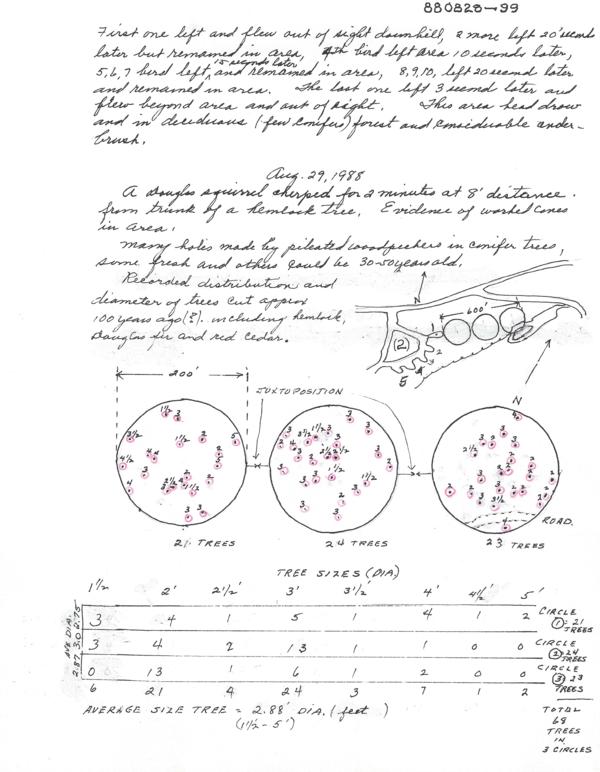 880828-99
First one left and flew out of sight downhill, 2 more left 20 seconds
later but remained in area, 4th bird left area 10 seconds later,
15 seconds later
5, 6, 7 bird left, and remained in area, 8, 9, 10, left 20 second later
and remained in area. The last one left 3 second later and
flew beyond area and out of sight. This area head draw
and in deciduous (few conifers) forest and considerable under-
brush.
Aug. 29, 1988
A Douglas squirrel cherped for 2 minutes at 8' distance.
from trunk of a hemlock tree. Evidence of worked cones
in area.
Many holes made by pileated woodpeckers in conifer trees,
some fresh and others could be 30-50 years old.
Recorded distribution and
diameter of trees cut approx
100 years ago (?). including hemlock,
Douglas fir and red cedar.
N
600'
1
(2)
2
4
5
N
200'
JUXTOPOSITION
ROAD.
21 TREES
24 TREES
23 TREES
TREE SIZES (DIA)
1½ 2' 2½' 3' 3½' 4' 4½' 5'
AVE DIA.
2.87 3.0 2.75
3 4 1 5 1 4 1 2 CIRCLE 1 = 21 TREES
3 4 2 13 1 1 0 0 CIRCLE 2 = 24 TREES
0 13 1 6 1 2 0 0 CIRCLE 3 = 23 TREES
6 21 4 24 3 7 1 2
AVERAGE SIZE TREE = 2.88' DIA. (feet)
(1½ - 5')
TOTAL
68
TREES
IN
3 CIRCLES